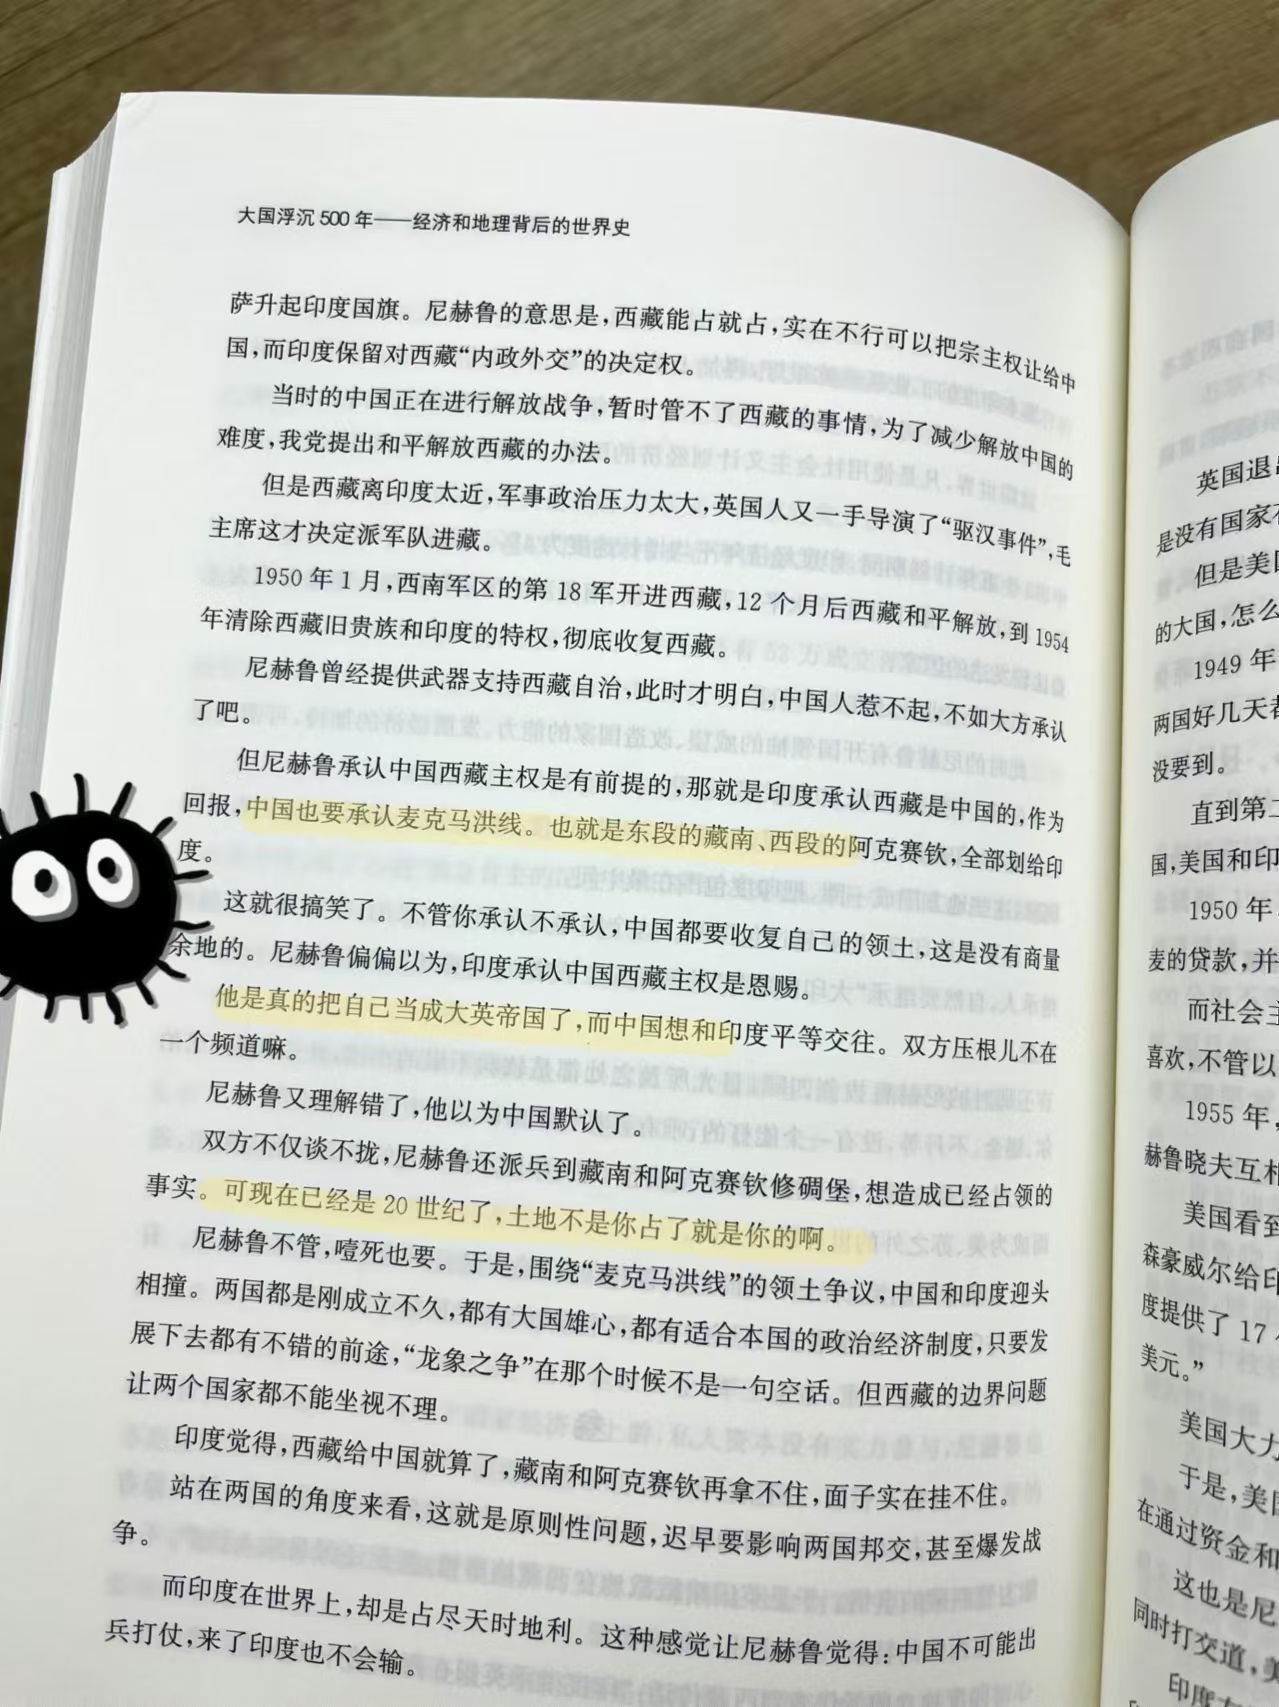 大国浮沉500年——经济和地理背后的世界史
萨升起印度国旗。尼赫鲁的意思是,西藏能占就占,实在不行可以把宗主权让给中
国,而印度保留对西藏“内政外交”的决定权。
当时的中国正在进行解放战争,暂时管不了西藏的事情,为了减少解放中国的
难度,我党提出和平解放西藏的办法。
但是西藏离印度太近,军事政治压力太大,英国人又一手导演了“驱汉事件”,毛
主席这才决定派军队进藏。
1950年1月,西南军区的第18军开进西藏,12个月后西藏和平解放,到1954
年清除西藏旧贵族和印度的特权,彻底收复西藏。
尼赫鲁曾经提供武器支持西藏自治,此时才明白,中国人惹不起,不如大方承认
了吧。
但尼赫鲁承认中国西藏主权是有前提的,那就是印度承认西藏是中国的,作为
回报,中国也要承认麦克马洪线。也就是东段的藏南、西段的阿克赛钦,全部划给印
度。
这就很搞笑了。不管你承认不承认,中国都要收复自己的领土,这是没有商量
余地的。尼赫鲁偏偏以为,印度承认中国西藏主权是恩赐。
他是真的把自己当成大英帝国了,而中国想和印度平等交往。双方压根儿不在
一个频道嘛。
尼赫鲁又理解错了,他以为中国默认了。
双方不仅谈不拢,尼赫鲁还派兵到藏南和阿克赛钦修碉堡,想造成已经占领的
事实。可现在已经是20世纪了,土地不是你占了就是你的啊。
尼赫鲁不管,噎死也要。于是,围绕“麦克马洪线”的领土争议,中国和印度迎头
相撞。两国都是刚成立不久,都有大国雄心,都有适合本国的政治经济制度,只要发
展下去都有不错的前途,“龙象之争”在那个时候不是一句空话。但西藏的边界问题
让两个国家都不能坐视不理。
印度觉得,西藏给中国就算了,藏南和阿克赛钦再拿不住,面子实在挂不住。
站在两国的角度来看,这就是原则性问题,迟早要影响两国邦交,甚至爆发战
争。
而印度在世界上,却是占尽天时地利。这种感觉让尼赫鲁觉得:中国不可能出
兵打仗,来了印度也不会输。
英国退
是没有国家
但是美
的大国,怎么
1949年
两国好几天
没要到。
直到第二
国,美国和印
1950年
麦的贷款,并
而社会主
喜欢,不管以
1955年,
赫鲁晓夫互相
美国看到
森豪威尔给印
度提供了17
美元。”
美国大力
于是,美国
在通过资金和
这也是尼
同时打交道,美
印度